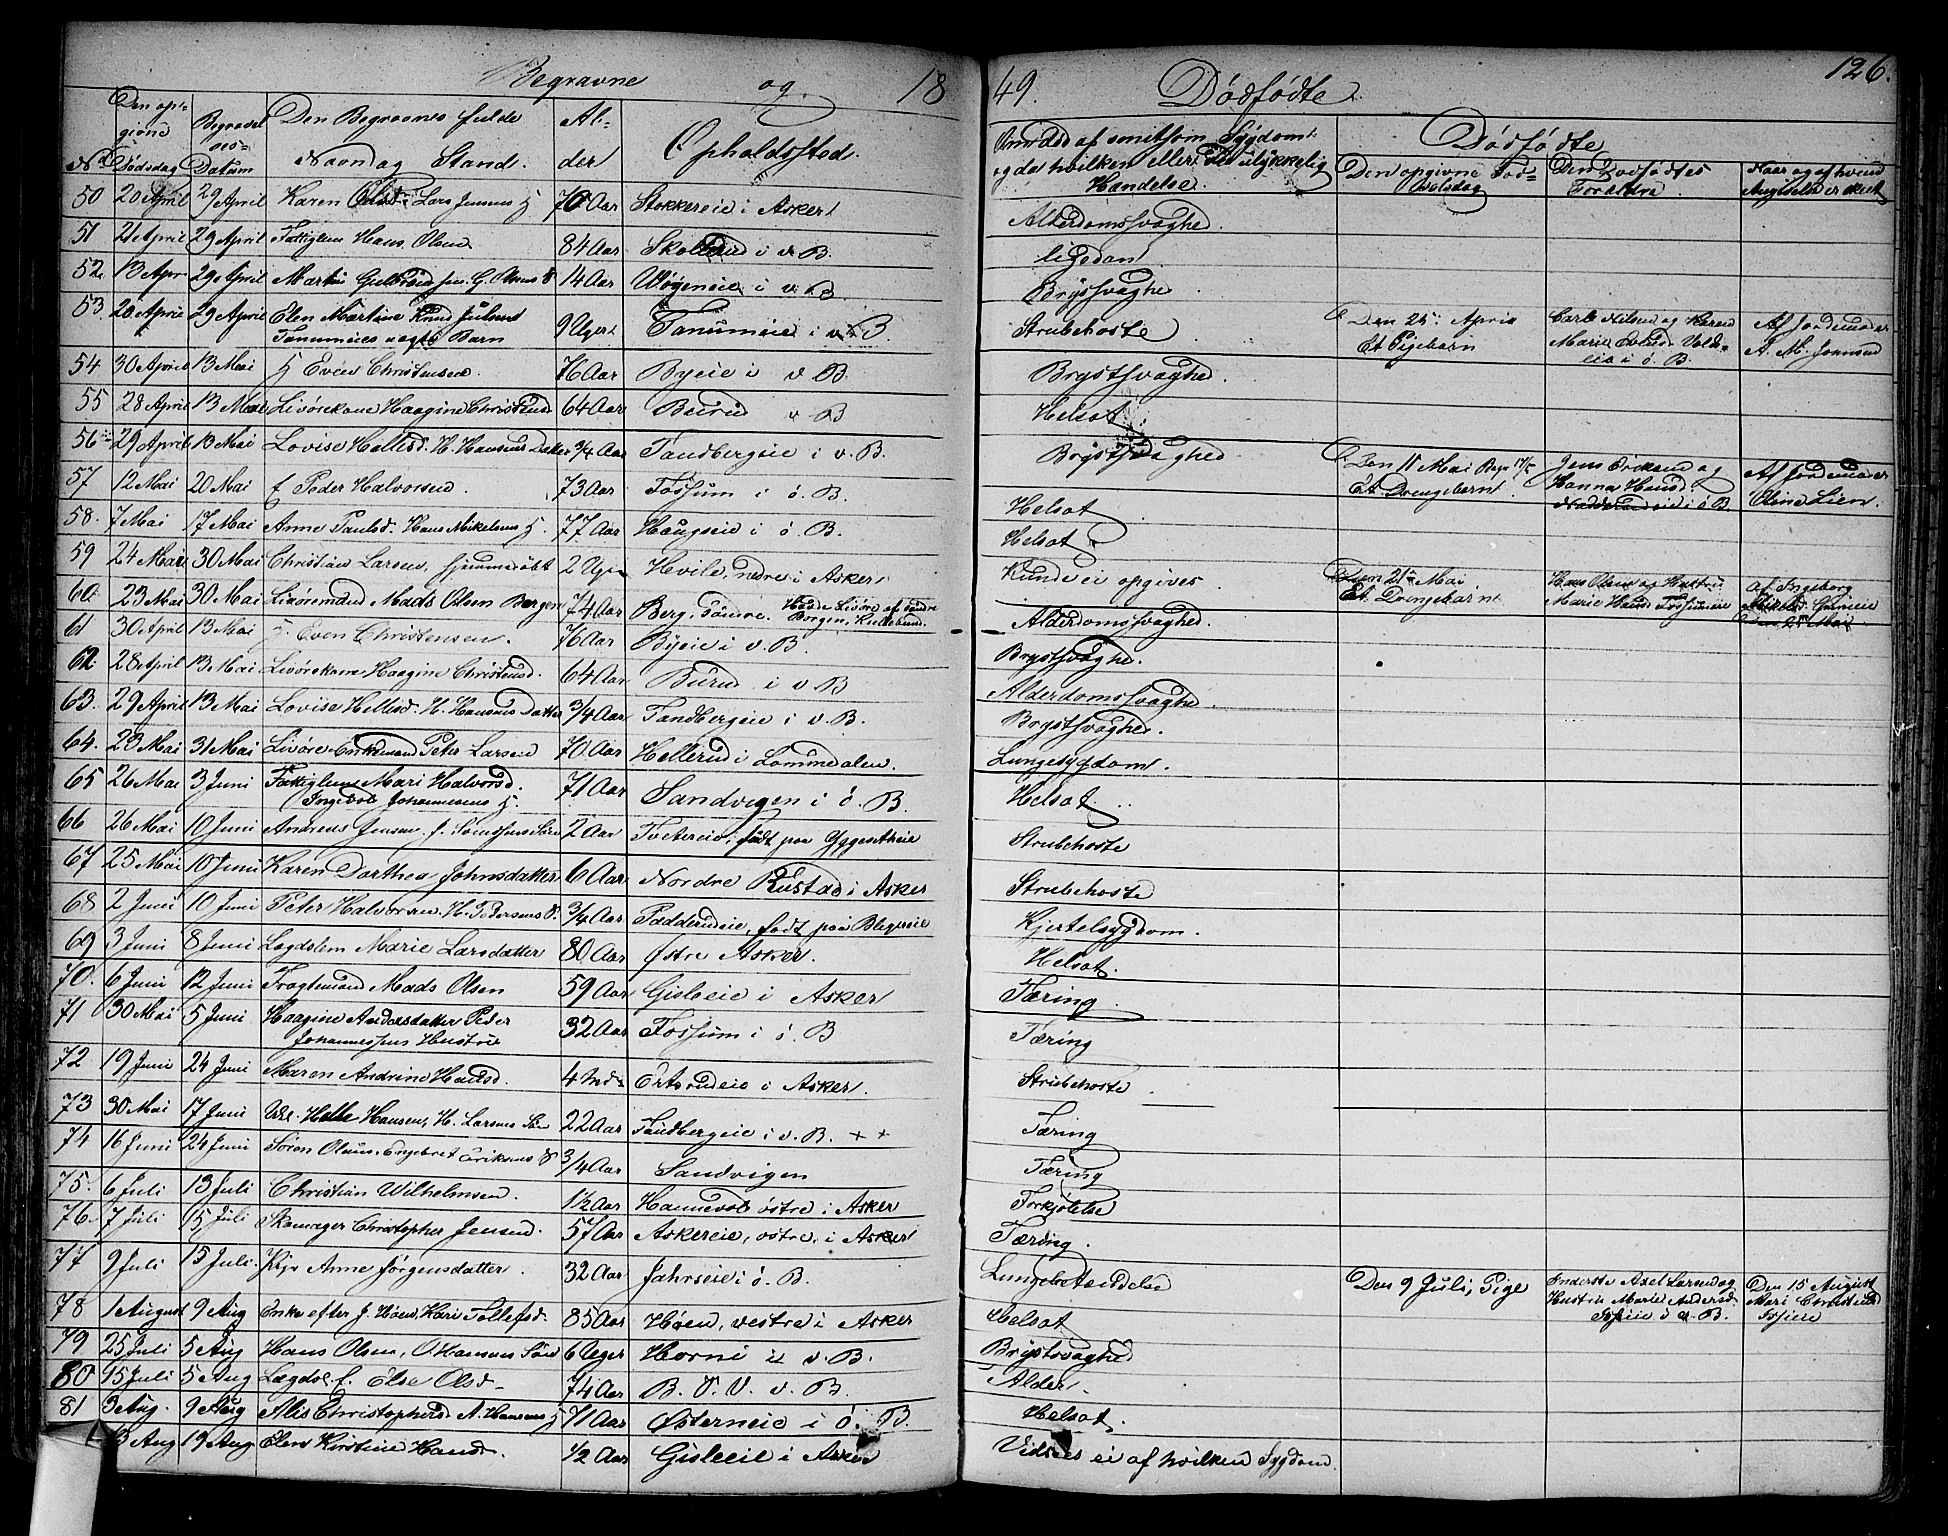 Begravne og 18
49. Dødfødte 126.
Den opgivne Dødsdag
Begravelses-Datum
Den Begravnes fulde Navn og Stand.
Alder
Opholdssted.
Om død af smitsom Sygdom og da hvilken eller ved ulykkelig Hændelse.
Dødfødte
Den opgivne Fødselsdag
Den Dødfødtes Forældre.
Naar og af hvem Anmeldelse er skeet
50 20 April 29 April Karen Lars Jensens H 70 Aar Stokkereie i Asker Alderdomssvaghed.
51 21 April 29 April Fattiglem Hans Olsen 84 Aar Skollerud i v. B. ligedan
52 13 Apr 29 April Martin G. Olsens S 14 Aar Wøyeneie i v. B. Brystsvaghe
53. 20 April 29 April Elen Martine Knud Juulsens 9 Uger Tanumeie i v. B Strubehoste Den 25 April Carl Nilsen og Karen Af Jordemoder
Tanumeies uægte Barn Et Pigebarn Marie i ø. B. A. M. Johnsen
54 30 April 13 Mai H Even Christensen. 76 Aar Byeie i v B. Brystsvaghed.
55 28 April 13 Mai Livørekone Haagine Christensd 64 Aar Burud v B Helsot
56 29 April 13 Mai Lovise Hellesd. H. Hansens Datter 3/4 Aar Tandbergeie i v. B. Brystsvaghed Den 11 Mai Begr 17/5 Jens Eriksen og Af Jordemoder
57 12 Mai 20 Mai f. Peder Halvorsen. 73 Aar Fossum i ø. B. Helsot Et Drengebarn Hanna Hansd i ø B. Olina Lien.
58. 7 Mai 17 Mai Anne Paulsd. Hans Mikelsens H. 77 Aar Haugseie i ø. B. Helsot
59 24 Mai 30 Mai Christian Larsen, hjemmedøbt 2 Uger Hvile, nedre i Asker Kunde ei opgives Den 21 Mai Hans Olsen og Hustru af Ingeborg
60. 23 Mai 30 Mai Livøremand Mads Olsen Bergen 74 Aar Berg, søndre. Havde Livøre af søndre Borgen, Alderdomssvaghed. Et Drengebarn Marie Hansd Fossumeie
61 30 April 13 Mai H. Even Christensen. 76 Aar Byeie i v. B. Brystsvaghe. Den 25 Mai
62. 28 April 13 Mai Livørekone Haagine Christensd. 64 Aar Burud i v B Alderdomssvaghed.
63. 29 April 13 Mai Lovise Hellesd. H. Hansens Datter 3/4 Aar Tandbergeie i v. B. Brystsvaghed.
64. 23 Mai 31 Mai Livøre Enkemand Peter Larsen 70 Aar Hellerud i Lommedalen. Lungesygdom.
65 26 Mai 3 Juni Fattiglem Mari Halvorsd. 71 Aar Sandvigen i ø. B. Helsot.
Johannesens H.
66 26 Mai 10 Juni Andreas Jensen 2 Aar Tvetereie, født paa Strubehoste
67 25 Mai 10 Juni Karen Dorthea Johnsdatter 6 Aar Nordre Rustad i Asker Strubehoste
68 2 Juni 10 Juni Peter Halvorsen H. Pedersens S. 3/4 Aar Padderudeie, født paa Kjertelsygdom.
69 3 Juni 8 Juni Lægdslem Marie Larsdatter 80 Aar Østre Asker. Helsot.
70. 6 Juni 12 Juni Mads Olsen 59 Aar Gisleeie i Asker Tæring
71 30 Mai 5 Juni Haagine Andersdatter Peder 32 Aar Fossum i ø. B Tæring
Johannessens Hustru
72 19 Juni 24 Juni Maren Andrine Hansd. 4 Md Ertsrudeie i Asker. Strubehoste
73 30 Mai 17 Juni Helle Hansen, H. Larsens Søn 22 Aar Tandbergeie i v. B. ++ Tæring
74 16 Juni 24 Juni Søren Olaus. Engebret Eriksens S 3/4 Aar Sandvigen Tæring
75. 6 Juli 13 Juli Christian Wilhelmsen. 1½ Aar Hannevold østre i Asker Forkjølelse
76. 7 Juli 15 Juli Skomager Christopher Jensen. 57 Aar Askereie, østre, i Asker Tæring.
77 9 Juli 15 Juli Anne Jørgensdatter 32 Aar Jahrseie i ø. B. Lungebetændelse Den 9 Juli, Pige Inderste Axel Larsen og Den 15 August
78 1 August 9 Aug Enke efter J. Høen, Kari Tollefsd. 85 Aar Høen, vestre i Asker Helsot Hustru Marie Andersd. Mari Christensd
79 25 Juli 5 Aug Hans Olsen, O Hansens Søn 6 Uger Horni i v. B. Brystsvaghed
80 15 Juli 5 Aug Lægdsl. f. Else Olsd. 74 Aar B. O. V. v. B. Alder
81 3 Aug. 9 Aug Alis Christophersd A. Hansens H 71 Aar Østerneie i ø. B. Helsot.
13 Aug 19 Aug Elen Kirstine Hansd. ½ Aar Gisleeie i Asker Vides ei af hvilken Sygdom.